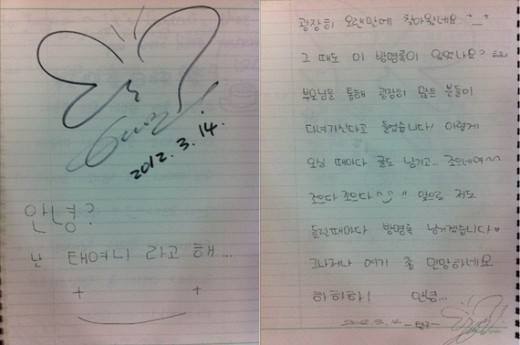 2012. 3. 14.
안녕?
난 태여니 라고 해...
굉장히 오랜만에 찾아왔네요 ^_^
그 때도 이 방명록이 있었나요?
부모님을 통해 굉장히 많은 분들이
다녀가신다고 들었습니다! 이렇게
오실 때마다 글도 남기고... 조으네여~~
조으다 조으다 ^^ 앞으로 저도
들릴때마다 방명록 남기겠습니다
그나저나 여기 좀 민망하네요
하하하!